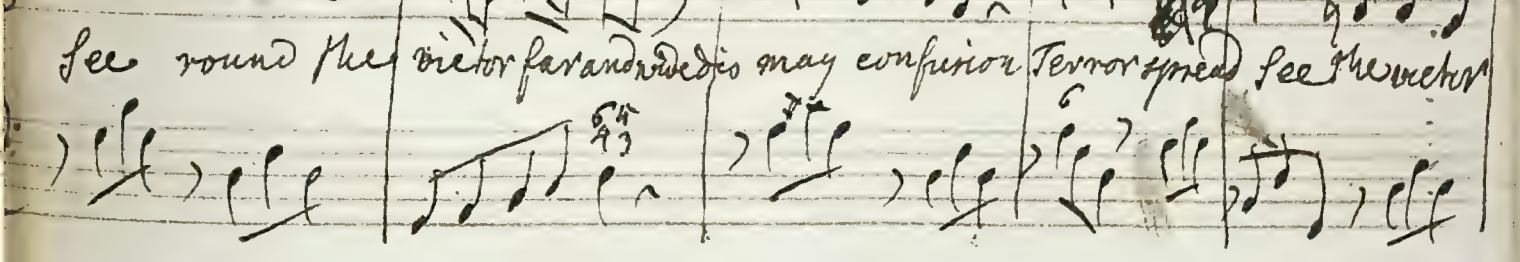 See round the victor far and wide dis may confusion Terror spread See the victor
6 5
4 3
6